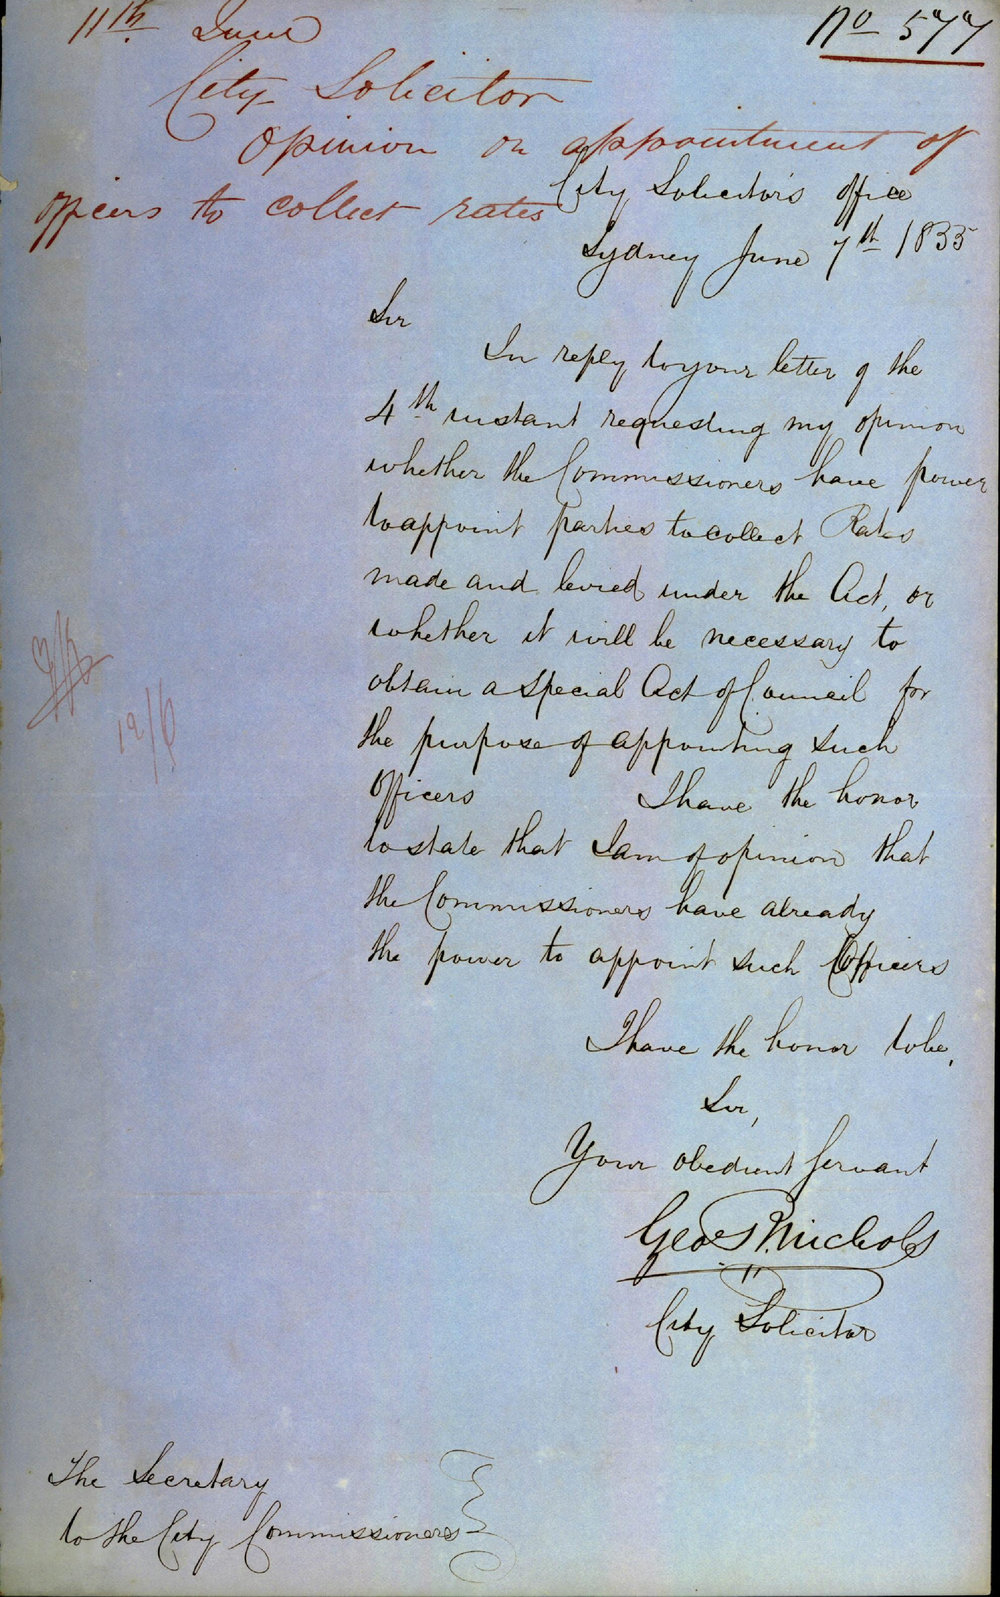 11th June
No 577
City Solicitor
Opinion on appointment of
officers to collect rates
City Solicitor's office
Sydney June 7th 1855
Sir
In reply to your letter of the
4th instant requesting my opinion
whether the Commissioners have power
to appoint parties to collect Rates
made and levied under the Act, or
whether it will be necessary to
obtain a special Act of Council for
the purpose of appointing such
Officers I have the honor
to state that I am of opinion that
the Commissioners have already
the power to appoint such Officers
I have the honor to be,
Sir,
Your obedient Servant
Geo R Nichols
City Solicitor
12/6
The Secretary
to the City Commissioners